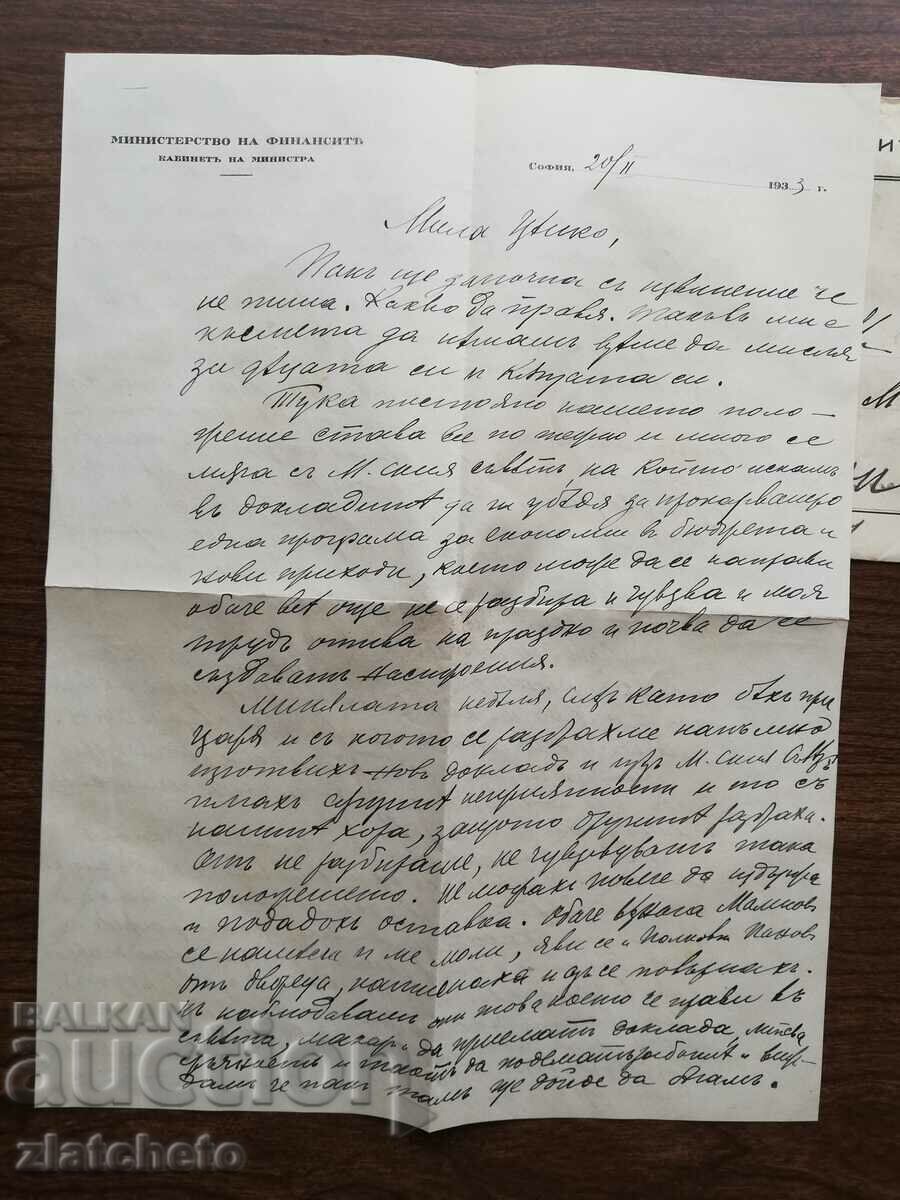 МИНИСТЕРСТВО НА ФИНАНСИТѢ
КАБИНЕТЪ НА МИНИСТРА
София, 20/II 1933 г.
Мила Цѣнко,
Пакъ ще започна съ извинение че
не пиша. Какво да правя. Такъвъ ми е
късмета да нѣмамъ време да мисля
за децата си и Кѫщата си.
Тука постоянно нашето поло-
жение става все по тежко и много се
съ М. ския съветъ, на който искамъ
въ докладитѣ да ги убѣдя за прокарванието
една програма за економии въ бюджета и
нови приходи, което може да се направи
обаче всѣ още не се разбира и чувства и моя
трудъ отива на праздно и почва да се
създаватъ настроения.
Миналата неделя, следъ като бѣхъ при
Царя и съ когото се разбрахме напълно
изготвихъ новъ докладъ и предъ М. ския Съветъ
имахъ неприятности и то съ
нашитѣ хора, защото другитѣ разбраха.
не разбираше, не чувствуватъ така
положението. Не можахъ повече да издържа
и подадохъ оставка. Обаче веднага
се намеси и ме моли, яви се и Полковн. Пановъ
отъ двореца, и азъ се повърнахъ.
наблюдавамъ това което се прави въ
съвета, макаръ да приематъ доклада, липсва
и да подематъ и виж-
дамъ че пакъ тамъ ще дойде да
И
М
BALKAN
auction
zlatcheto
zlatcheto